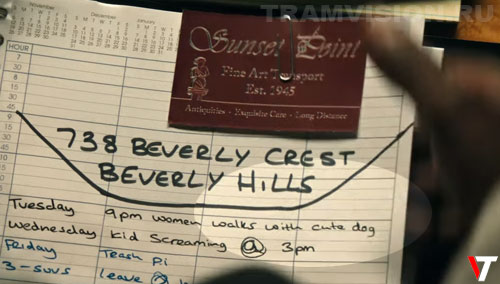 TRAMVISION.RU
November
December
January
HOUR
Sunset Point
Fine Art Transport
Est. 1945
Antiquities - Exquisite Care - Long Distance
7
30
8
30
45
9
15
30
45
10
15
738 BEVERLY CREST
BEVERLY HILLS
Tuesday 9pm women walks with cute dog
Wednesday Kid Screaming @ 3pm
Friday Trash P.i
3-suvs leave @
VT